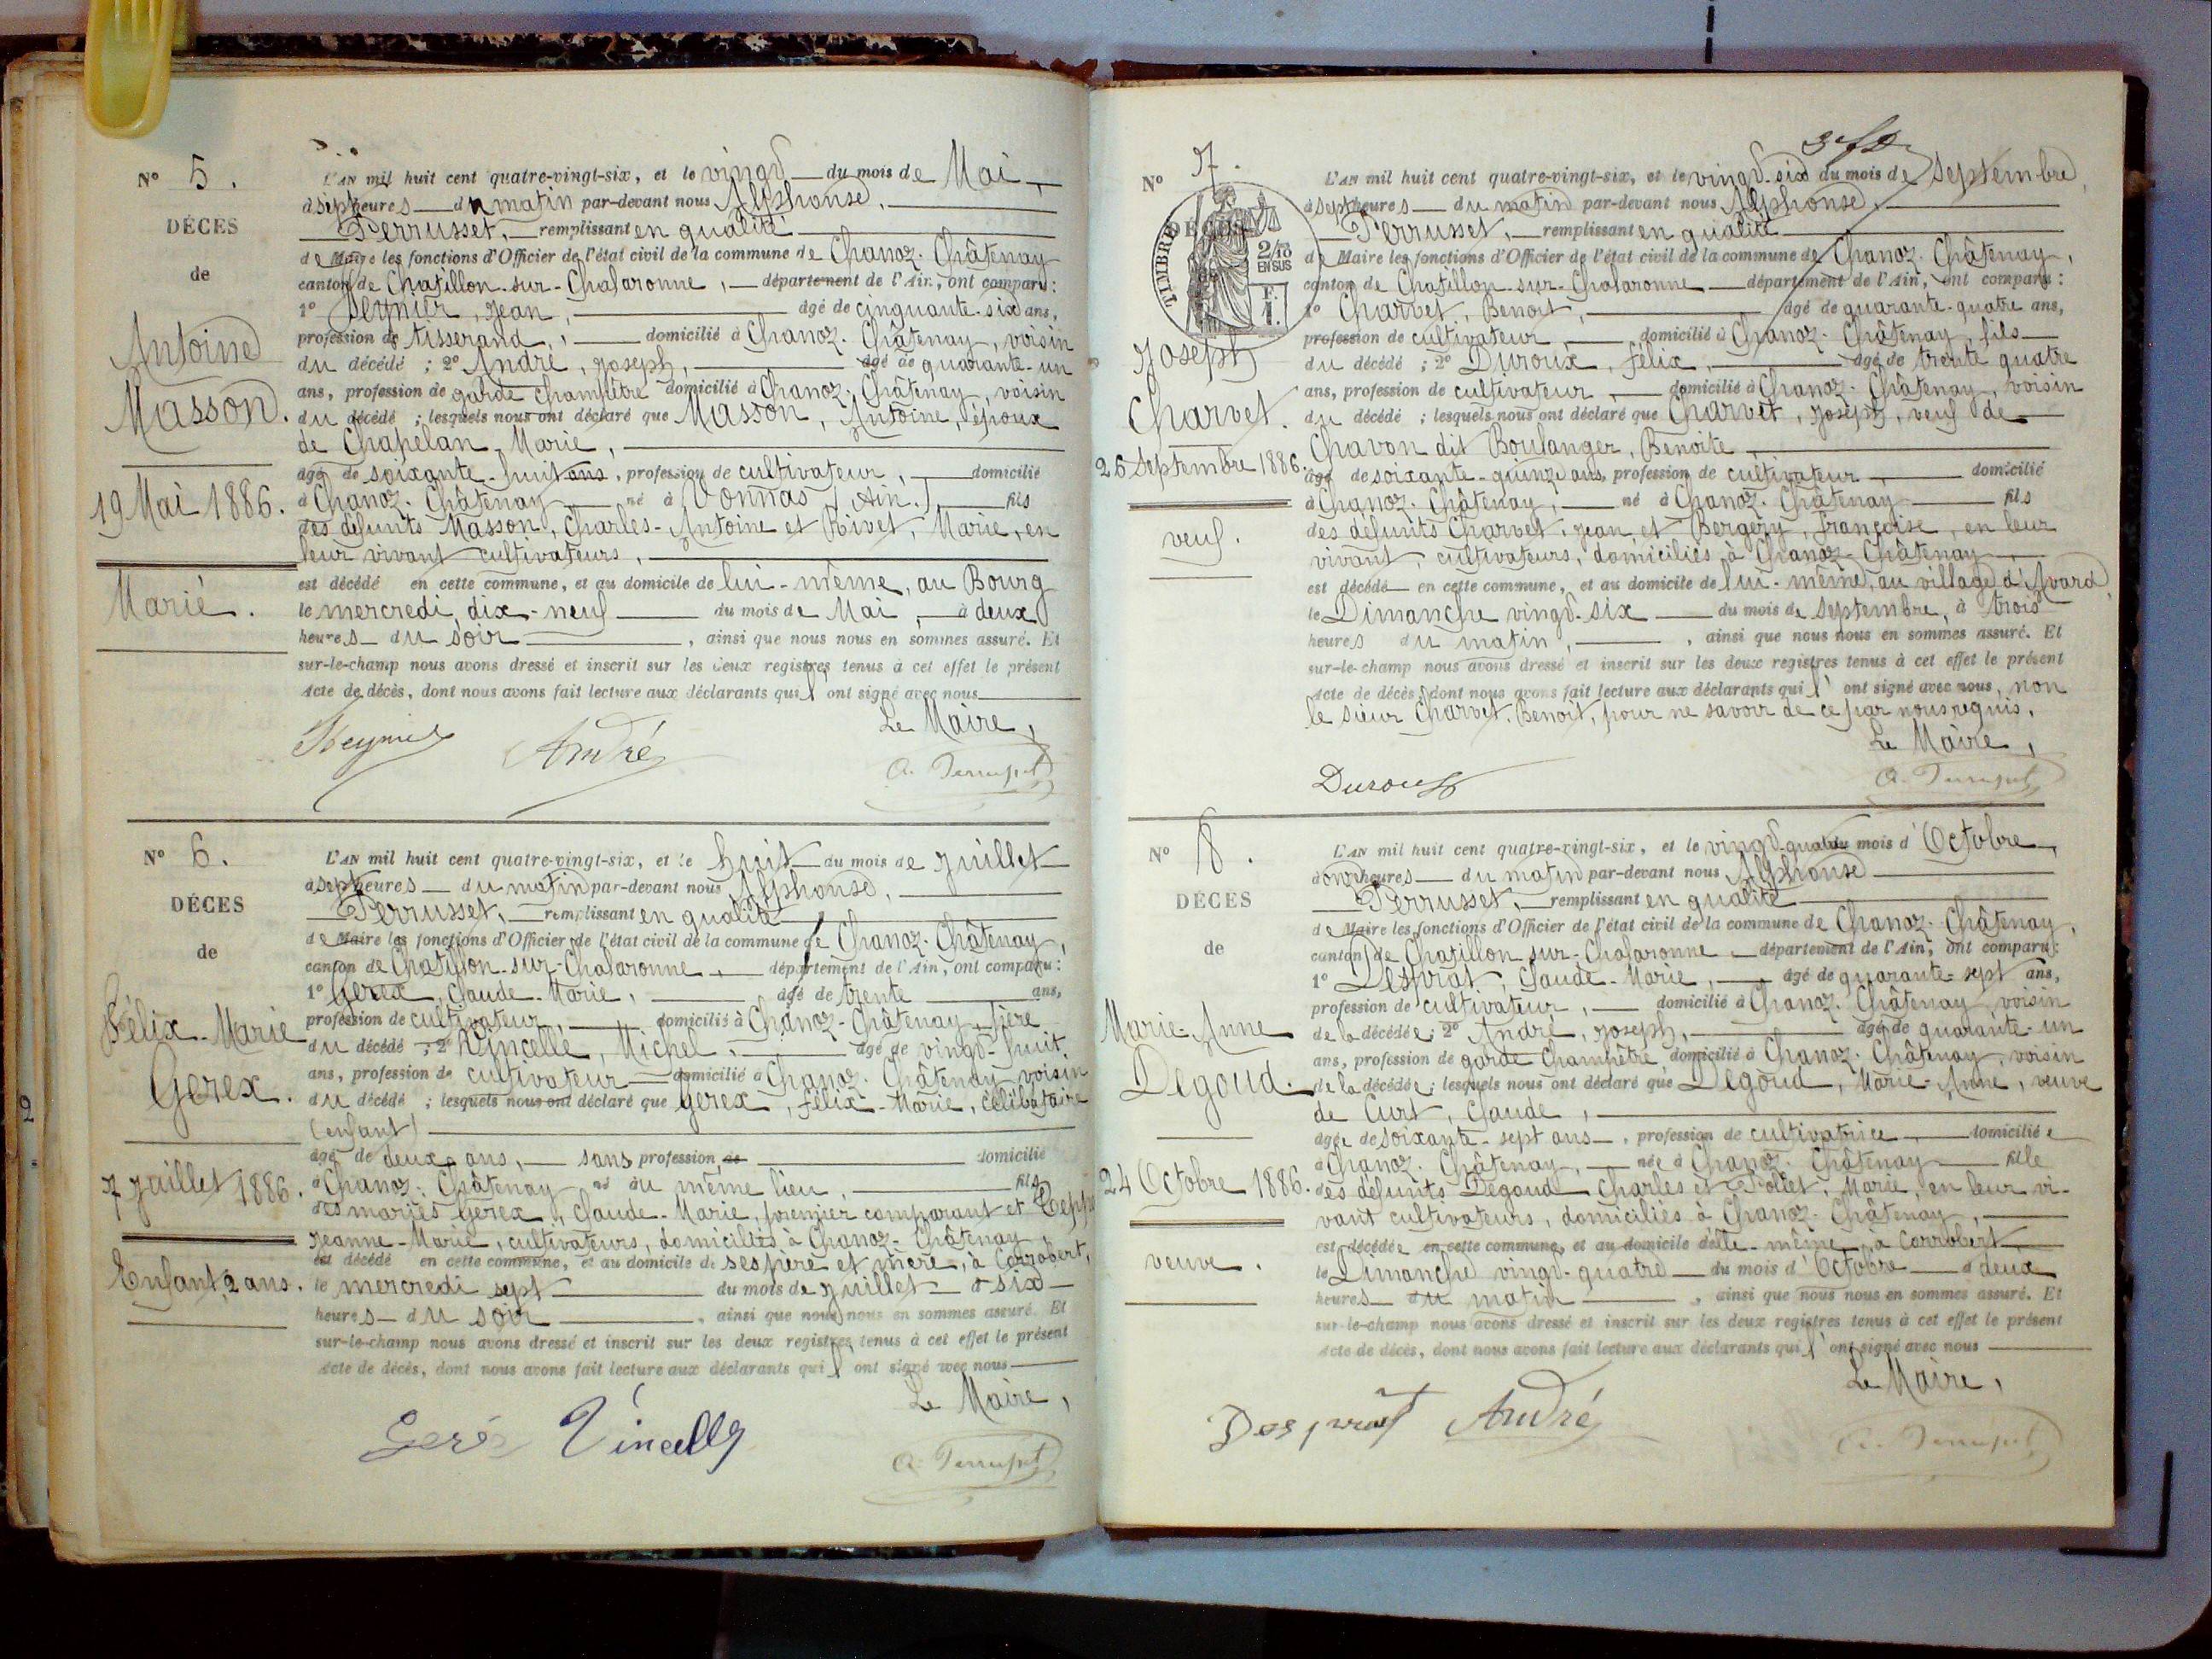 N° 5.
DÉCES
de
Antoine
Masson.
19 Mai 1886.
Marié.
L'AN mil huit cent quatre-vingt-six, et le vingt du mois de Mai
à sept heures du matin par-devant nous Alphonse,
Perrusset, remplissant en qualité
de Maire les fonctions d'Officier de l'état civil de la commune de Chanoz-Châtenay
canton de Chatillon-sur-Chalaronne, département de l'Ain, ont comparu :
1° Jean, âgé de cinquante-six ans,
profession de tisserand, domicilié à Chanoz-Châtenay, voisin
du décédé ; 2° André, Joseph, âgé de quarante-un
ans, profession de garde champêtre domicilié à Chanoz-Châtenay, voisin
du décédé ; lesquels nous ont déclaré que Masson, Antoine, époux
de Chapelan, Marie,
âgé de soixante-huit ans, profession de cultivateur, domicilié
à Chanoz-Châtenay né à Vonnas (Ain.) fils
des défunts Masson, Charles-Antoine et Rivet, Marie, en
leur vivant cultivateurs,
est décédé en cette commune, et au domicile de lui-même, au Bourg
le mercredi, dix-neuf du mois de Mai, à deux
heures du soir, ainsi que nous nous en sommes assuré. Et
sur-le-champ nous avons dressé et inscrit sur les deux registres tenus à cet effet le présent
Acte de décès, dont nous avons fait lecture aux déclarants qui l' ont signé avec nous
Le Maire,
André
A. Perrusset
N° 6.
DÉCES
de
Félix-Marie
Gerex.
7 Juillet 1886.
Enfant, 2 ans.
L'AN mil huit cent quatre-vingt-six, et le huit du mois de Juillet
à sept heures du matin par-devant nous Alphonse,
Perrusset, remplissant en qualité
de Maire les fonctions d'Officier de l'état civil de la commune de Chanoz-Châtenay,
canton de Chatillon-sur-Chalaronne, département de l'Ain, ont comparu :
1° Gerex, Claude-Marie, âgé de trente ans,
profession de cultivateur, domicilié à Chanoz-Châtenay, père
du décédé ; 2° Vincelle, Michel, âgé de vingt-huit
ans, profession de cultivateur domicilié à Chanoz-Châtenay, voisin
du décédé ; lesquels nous ont déclaré que Gerex, Félix-Marie, célibataire
(enfant)
âgé de deux ans, sans profession de domicilié
à Chanoz-Châtenay né au même lieu, fils
des mariés Gerex, Claude-Marie, premier comparant et
Jeanne-Marie, cultivateurs, domiciliés à Chanoz-Châtenay
est décédé en cette commune, et au domicile de ses père et mère, à Corrobert,
le mercredi sept du mois de Juillet à six
heures du soir, ainsi que nous nous en sommes assuré. Et
sur-le-champ nous avons dressé et inscrit sur les deux registres tenus à cet effet le présent
Acte de décès, dont nous avons fait lecture aux déclarants qui l' ont signé avec nous
Le Maire,
Vincelle
A. Perrusset
N° 7.
DÉCES
TIMBRE
2/10
EN SUS
Joseph
Charvet.
26 Septembre 1886.
veuf.
L'AN mil huit cent quatre-vingt-six, et le vingt-six du mois de Septembre,
à sept heures du matin par-devant nous Alphonse,
Perrusset, remplissant en qualité
de Maire les fonctions d'Officier de l'état civil de la commune de Chanoz-Châtenay,
canton de Chatillon-sur-Chalaronne département de l'Ain, ont comparu :
1° Charvet, Benoit, âgé de quarante-quatre ans,
profession de cultivateur, domicilié à Chanoz-Châtenay, fils
du décédé ; 2° Duroux, Félix, âgé de trente quatre
ans, profession de cultivateur, domicilié à Chanoz-Châtenay, voisin
du décédé ; lesquels nous ont déclaré que Charvet, Joseph, veuf de
Chavon dit Boulanger, Benoite,
âgé de soixante-quinze ans, profession de cultivateur, domicilié
à Chanoz-Châtenay, né à Chanoz-Châtenay fils
des défunts Charvet, Jean et Bergery, Françoise, en leur
vivant, cultivateurs, domiciliés à Chanoz-Châtenay
est décédé en cette commune, et au domicile de lui-même, au village d'Avard,
le Dimanche vingt-six du mois de Septembre, à trois
heures du matin, ainsi que nous nous en sommes assuré. Et
sur-le-champ nous avons dressé et inscrit sur les deux registres tenus à cet effet le présent
Acte de décès, dont nous avons fait lecture aux déclarants qui l' ont signé avec nous, non
le sieur Charvet, Benoit, pour ne savoir de ce par nous requis.
Le Maire,
Duroux
A. Perrusset
N° 8.
DÉCES
de
Marie-Anne
Degoud.
24 Octobre 1886.
veuve.
L'AN mil huit cent quatre-vingt-six, et le vingt-quatre du mois d'Octobre,
à onze heures du matin par-devant nous Alphonse
Perrusset, remplissant en qualité
de Maire les fonctions d'Officier de l'état civil de la commune de Chanoz-Châtenay,
canton de Chatillon-sur-Chalaronne département de l'Ain, ont comparu :
1° Desprat, Claude-Marie, âgé de quarante-sept ans,
profession de cultivateur, domicilié à Chanoz-Châtenay, voisin
de la décédée ; 2° André, Joseph, âgé de quarante-un
ans, profession de garde champêtre, domicilié à Chanoz-Châtenay, voisin
de la décédée ; lesquels nous ont déclaré que Degoud, Marie-Anne, veuve
de Curt, Claude,
âgée de soixante-sept ans, profession de cultivatrice, domiciliée
à Chanoz-Châtenay, née à Chanoz-Châtenay fille
des défunts Degoud Charles et Marie, en leur vi-
vant cultivateurs, domiciliés à Chanoz-Châtenay,
est décédée en cette commune, et au domicile d'elle-même, à Corrobert
le Dimanche vingt-quatre du mois d'Octobre à deux
heures du matin, ainsi que nous nous en sommes assuré. Et
sur-le-champ nous avons dressé et inscrit sur les deux registres tenus à cet effet le présent
Acte de décès, dont nous avons fait lecture aux déclarants qui l' ont signé avec nous
Le Maire,
Desprat André
A. Perrusset